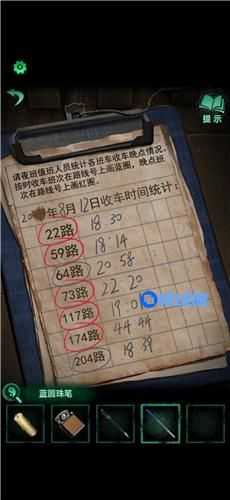 提示
请夜班值班人员统计各班车收车晚点情况。
按时收车班次在路线号上画蓝圈，晚点班
次在路线号上画红圈。
年8月12日收车时间统计：
22路 18 30
59路 18:14
64路 20 58
73路 22 20
117路 19:0
174路 44 44
204路 18 39
蓝圆珠笔